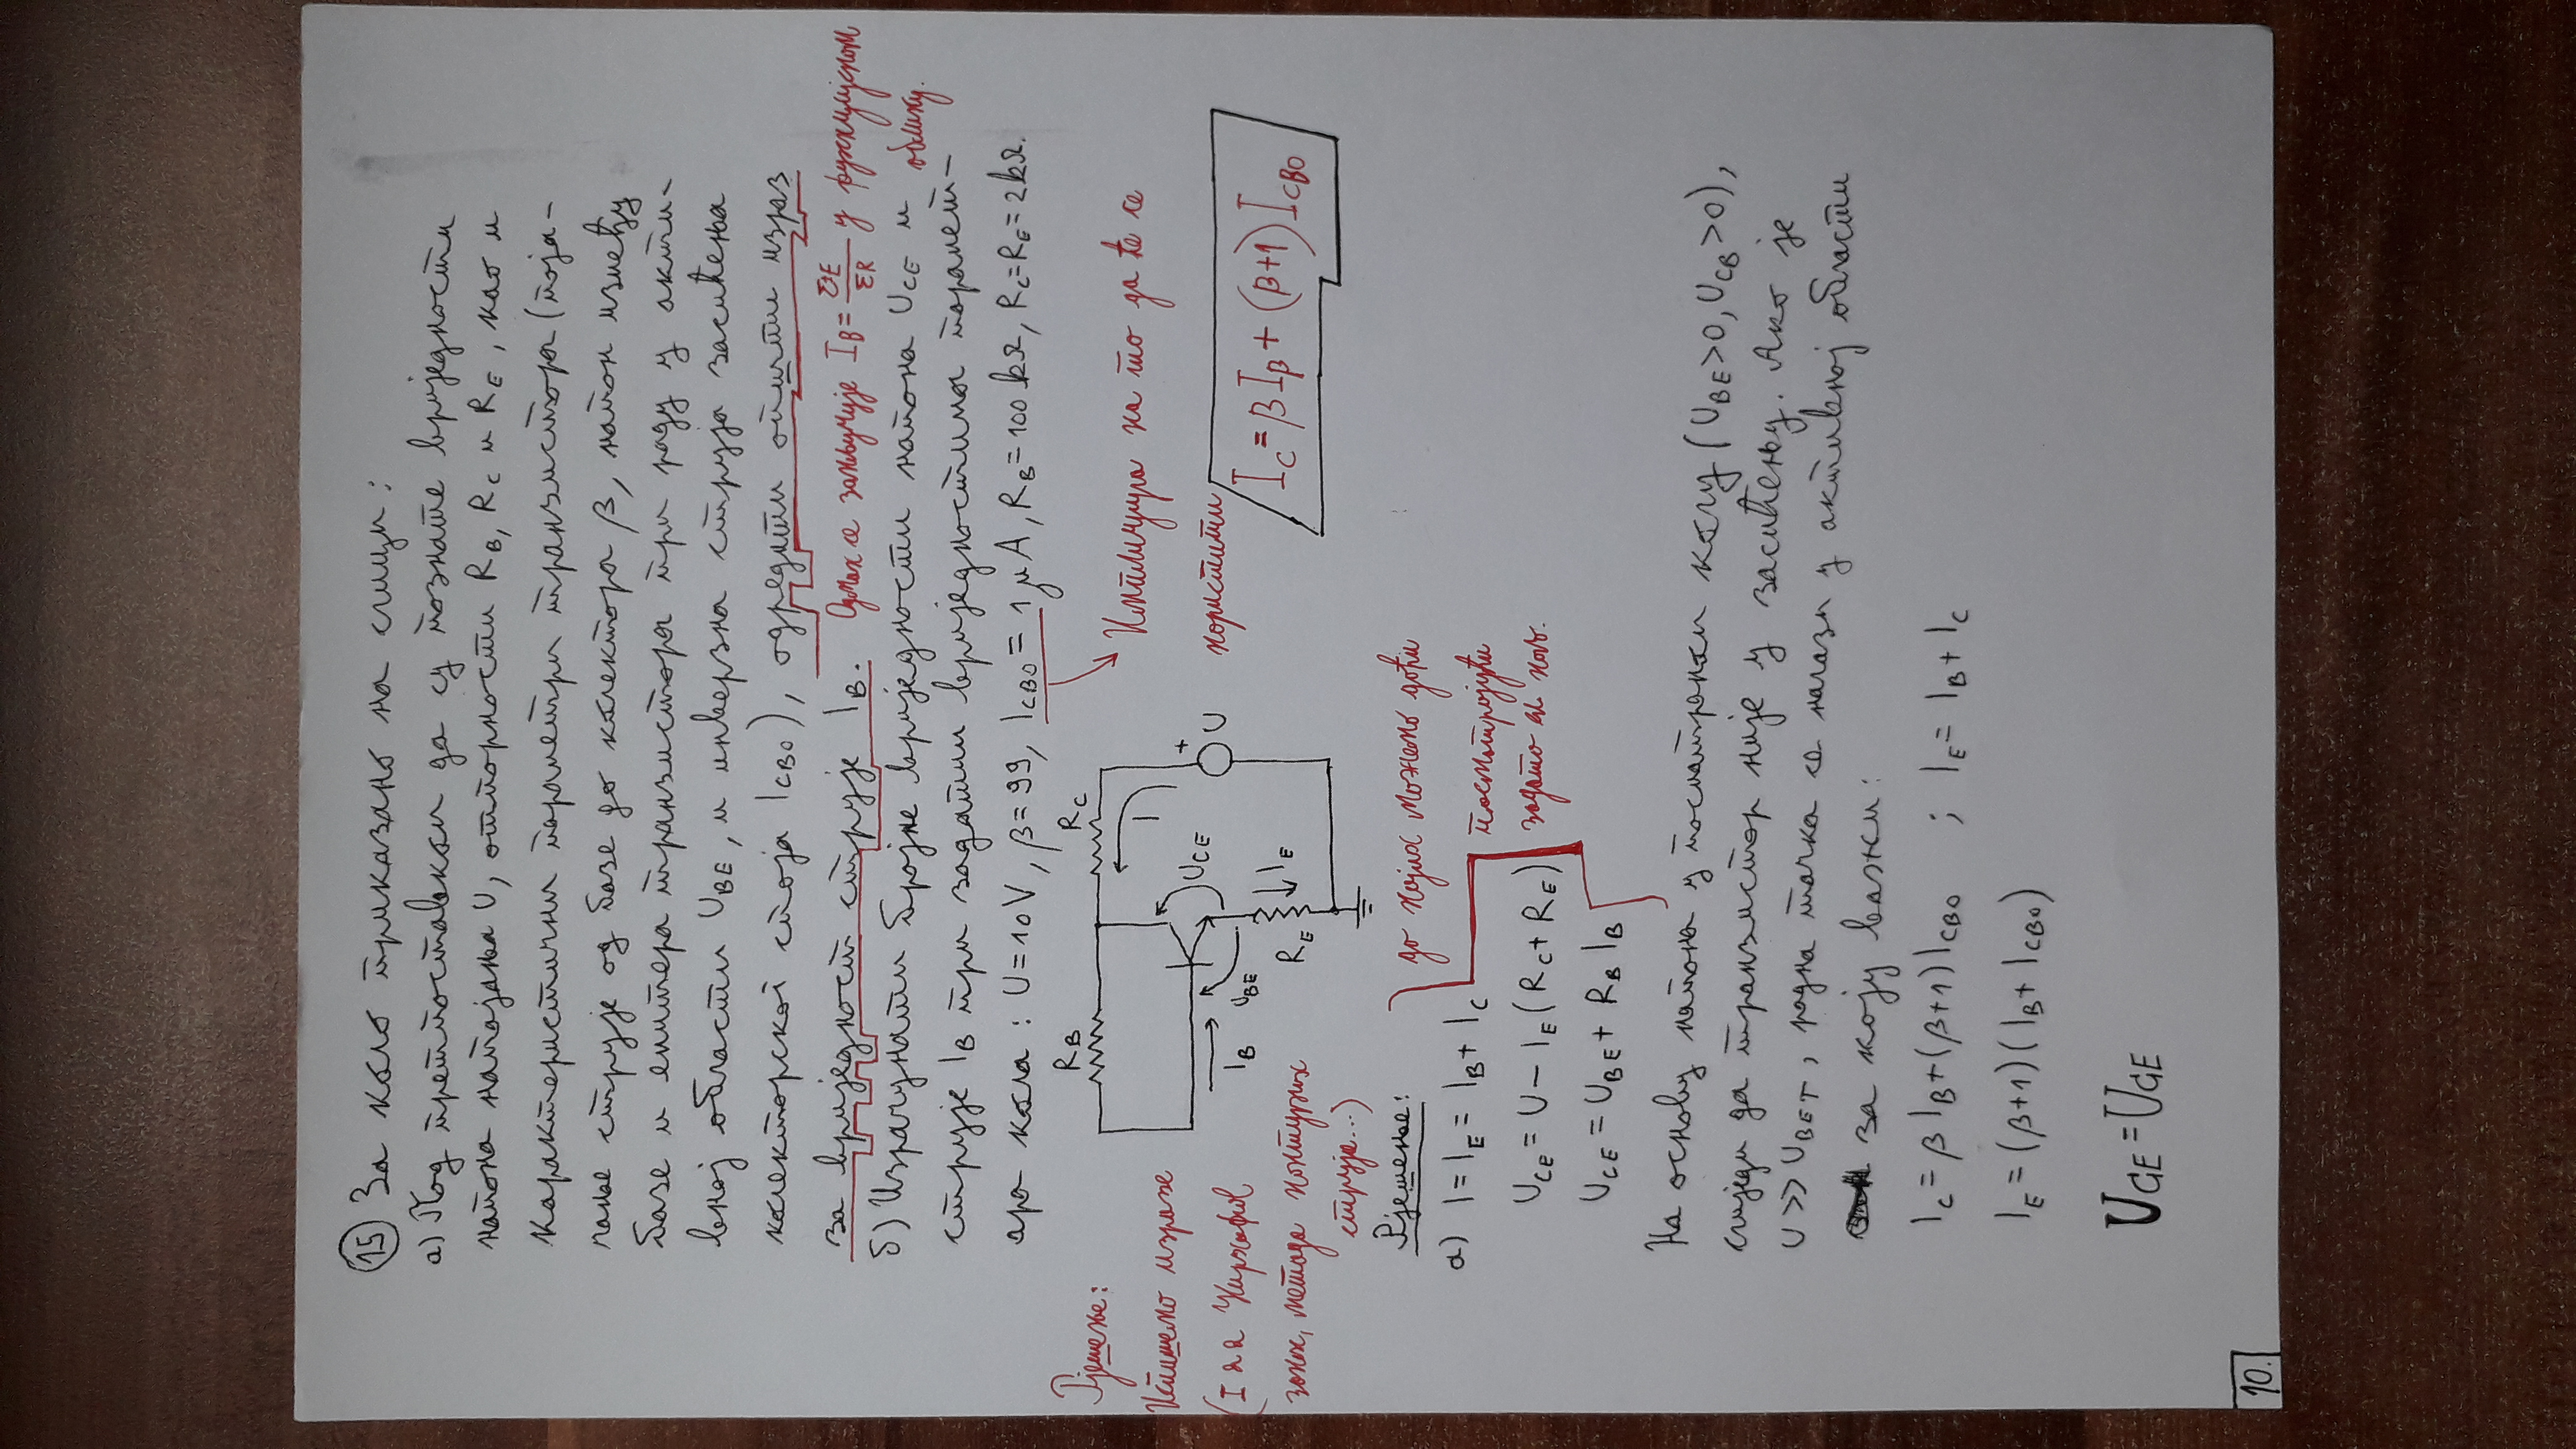 15 За коло приказано на слици:
а) Под претпоставком да су познате вриједности
напона напајања U, отпорности RB, RC и RE, као и
карактеристични параметри транзистора (поја-
чање струје од базе до колектора β, напон између
базе и емитера транзистора при раду у акти-
вној области UBE, и инверзна струја засићења
колекторског споја ICBO), одредити општи израз
за вриједност струје IB. Одмах се закључује IB = ΣE/ΣR у функцијском
облику.
б) Израчунати бројне вриједности напона UCE и
струје IB при задатим вриједностима парамет-
ара кола: U=10V, β=99, ICBO=1μA, RB=100kΩ, RC=RE=2kΩ.
Рјешење:
Испишемо изразе
(I & 2 Кирхофов
закон, метода контурних
струја...)
RB
RC
I
UCE
+
U
IB
UBE
RE
IE
Имплицира на то да ће се
користити
IC=βIβ+(β+1)ICBO
Рјешење:
до којих можемо доћи
посматрајући
задато ел. коло.
а) I=IE=IB+IC
UCE=U-IE(RC+RE)
UCE=UBE+RB IB
На основу напона у посматраном колу (UBE>0, UCB>0),
слиједи да транзистор није у засићењу. Ако је
U>>UBET, радна тачка се налази у активној области
за коју важи:
IC=βIB+(β+1)ICBO ; IE=IB+IC
IE=(β+1)(IB+ICBO)
UCE=UCE
10.